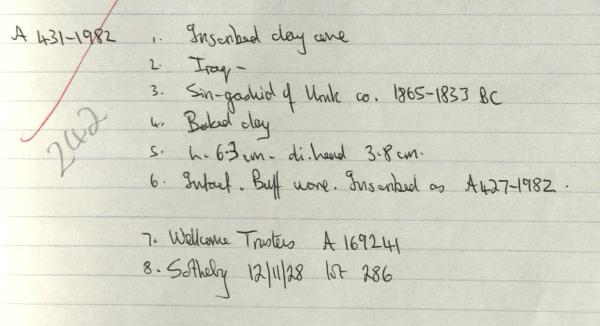 A 431-1982 1. Inscribed clay cone
2. Iraq -
3. Sin-gashid of Uruk co. 1865-1833 BC
4. Baked clay
5. h. 6.3 cm - di. head 3.8 cm.
6. Intact. Buff ware. Inscribed as A427-1982.
242
7. Wellcome Trustees A 169241
8. Sotheby 12/11/28 lot 286